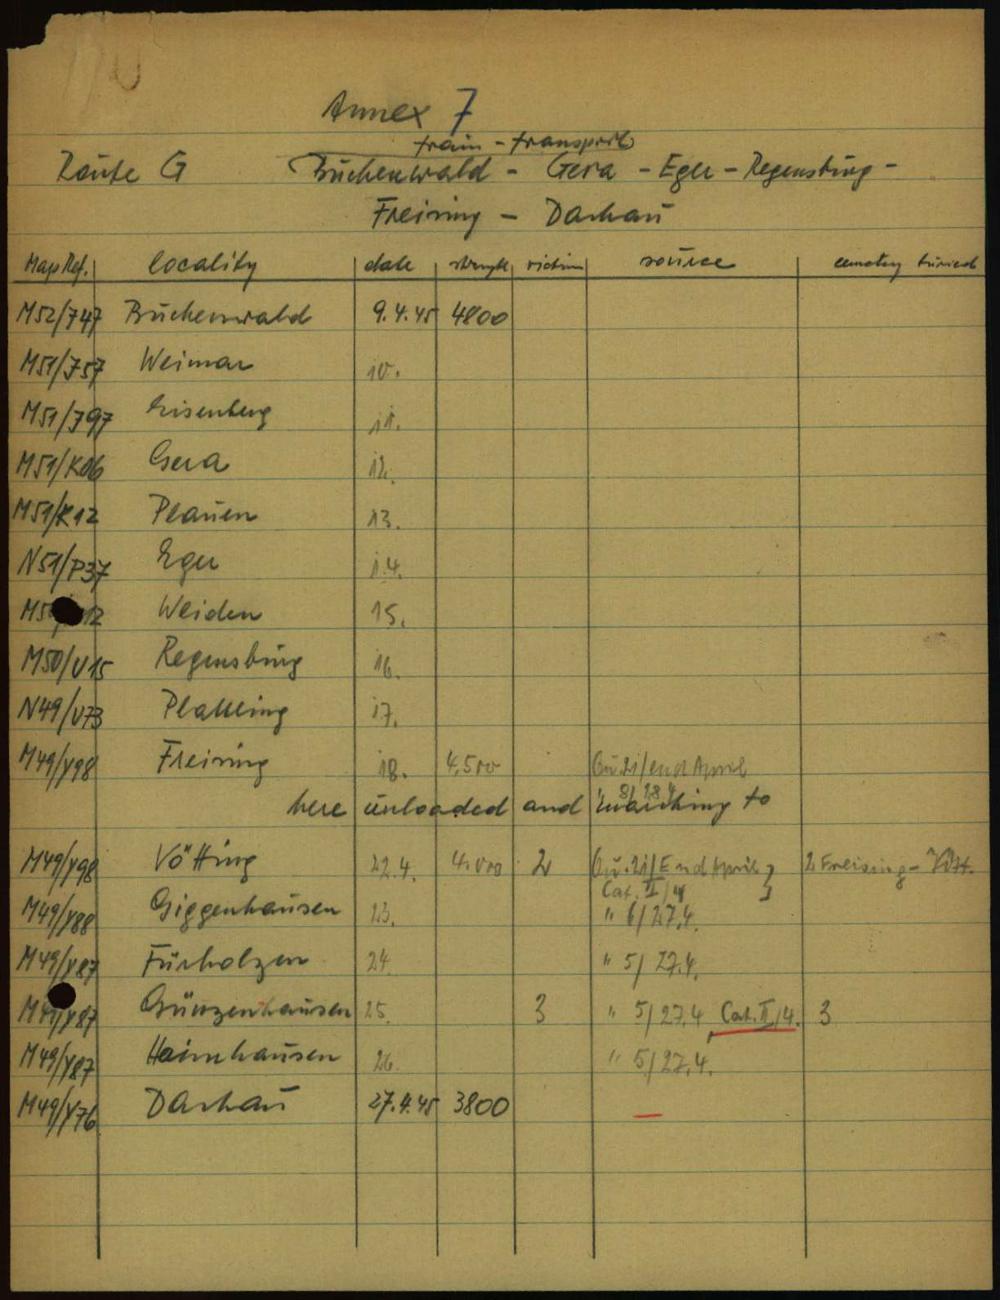 Annex 7
train - transport
Route G Buchenwald - Gera - Eger - Regensburg -
Freising - Dachau
Map Ref. locality date strength victims source cemetery buried
M52/J47 Buchenwald 9.4.45 4800
M51/J57 Weimar 10.
M51/J97 Eisenberg 11.
M51/K06 Gera 12.
M51/K12 Plauen 13.
N51/P37 Eger 14.
Weiden 15.
M50/U15 Regensburg 16.
N49/U73 Plattling 17.
M49/Y98 Freising 18. 4.500 Qu.21/end April
8/28.4
here unloaded and marching to
M49/Y98 Vötting 22.4. 4.000 2 Qu.21/End April } 2 Freising - Vött.
Cat. II/4
M49/Y88 Giggenhausen 23. " 6/27.4.
M49/Y87 Fürholzen 24 " 5/27.4.
M49/Y87 Günzenhausen 25. 3 " 5/27.4 Cat. II/4. 3
M49/Y87 Haimhausen 26. " 5/27.4.
M49/Y76 Dachau 27.4.45 3800 —